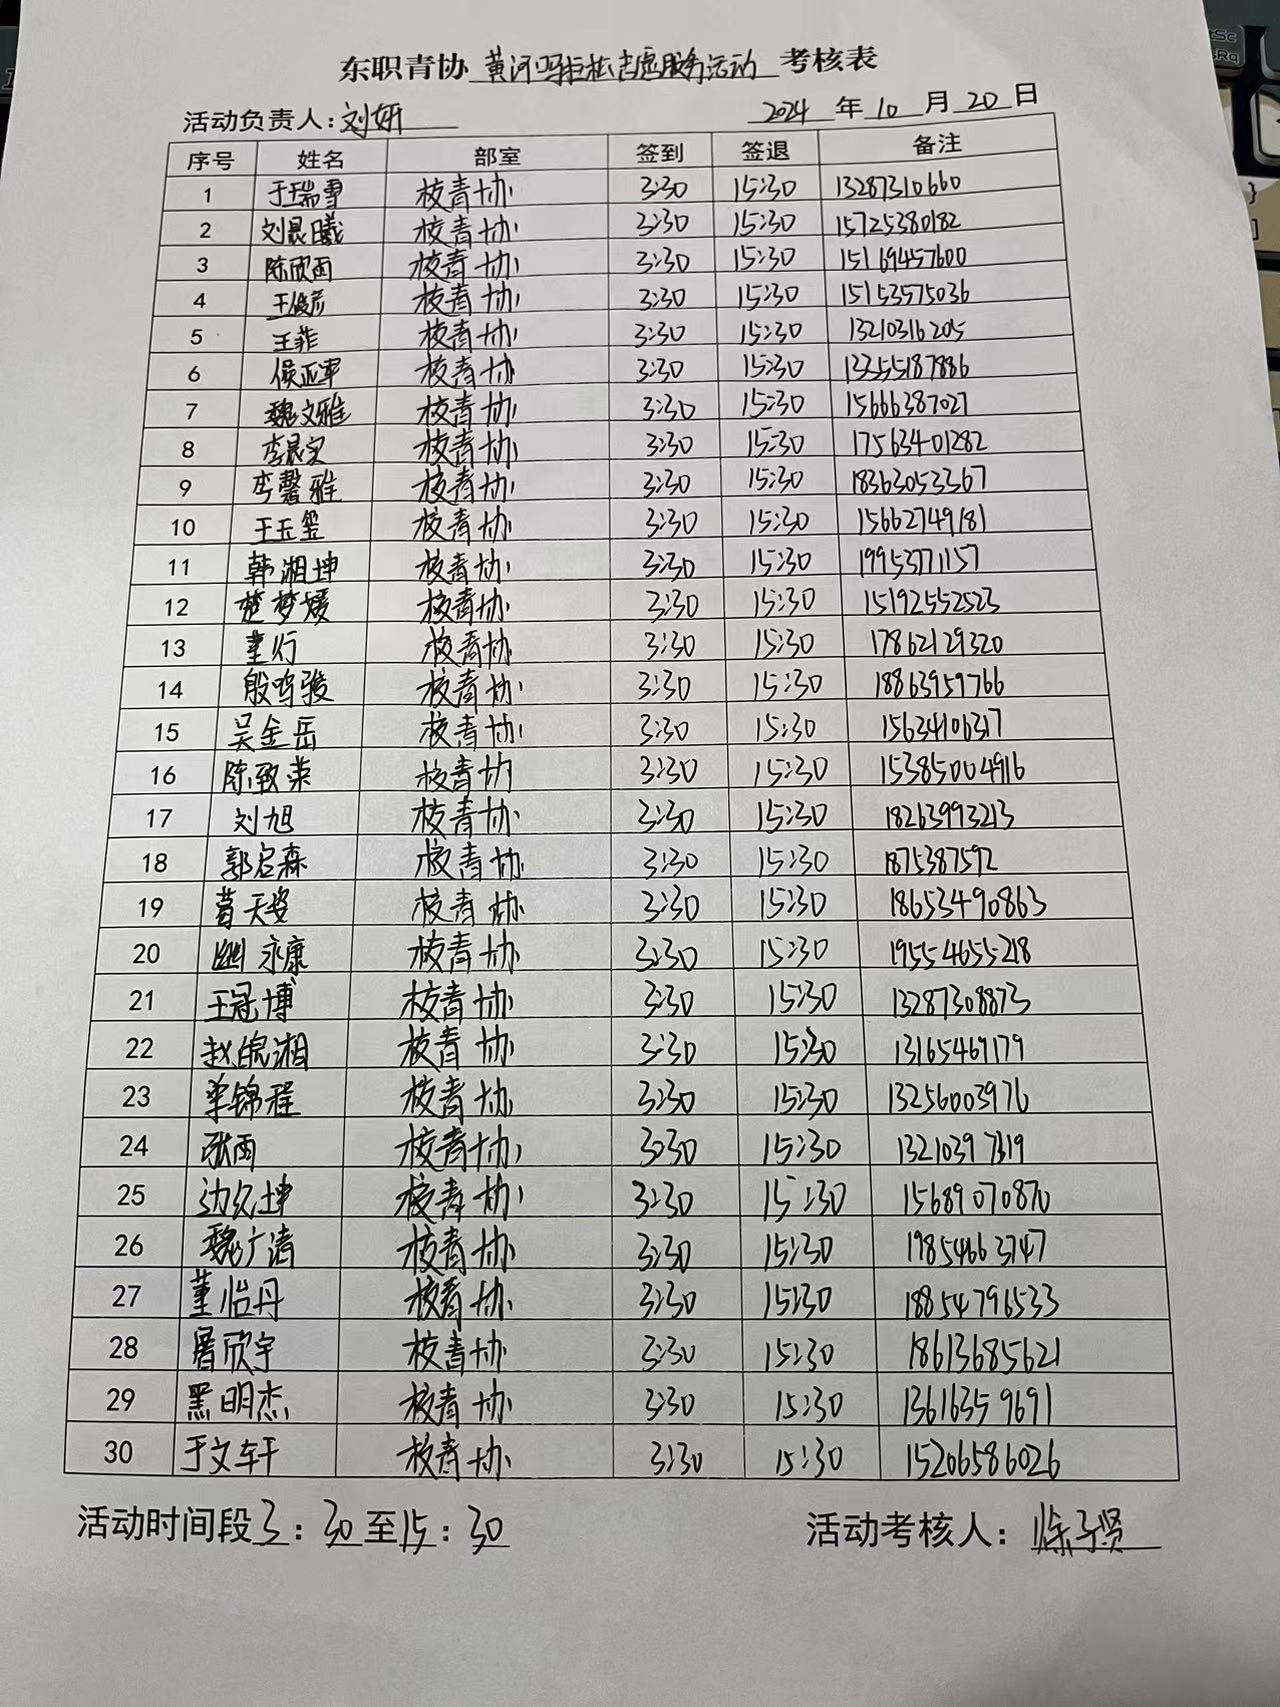 东职青协 黄河口马拉松志愿服务活动 考核表
活动负责人:刘妍 2024 年 10 月 20 日
序号 姓名 部室 签到 签退 备注
1 于瑞雪 校青协 3:30 15:30 13287310660
2 刘晨曦 校青协 3:30 15:30 15725380182
3 陈欣雨 校青协 3:30 15:30 15169457600
4 王俊彦 校青协 3:30 15:30 15153575036
5 王菲 校青协 3:30 15:30 13210316205
6 侯正军 校青协 3:30 15:30 13355187886
7 魏文雅 校青协 3:30 15:30 15666387027
8 李晨实 校青协 3:30 15:30 17563401282
9 李馨雅 校青协 3:30 15:30 18363053367
10 王玉玺 校青协 3:30 15:30 15662749181
11 韩湘坤 校青协 3:30 15:30 19953771157
12 楚梦媛 校青协 3:30 15:30 15192552523
13 董行 校青协 3:30 15:30 17862129320
14 殷鸣骏 校青协 3:30 15:30 18863959766
15 吴金岳 校青协 3:30 15:30 15634106317
16 陈致荣 校青协 3:30 15:30 15385004916
17 刘旭 校青协 3:30 15:30 18263993213
18 郭启森 校青协 3:30 15:30 1875387592
19 葛天姿 校青协 3:30 15:30 18653490863
20 永康 校青协 3:30 15:30 195554655218
21 王冠博 校青协 3:30 15:30 13287308873
22 赵皖湘 校青协 3:30 15:30 13165469179
23 李锦程 校青协 3:30 15:30 13256003976
24 张雨 校青协 3:30 15:30 13210397319
25 边久坤 校青协 3:30 15:30 15689070870
26 魏广清 校青协 3:30 15:30 19854663747
27 董怡丹 校青协 3:30 15:30 18854796533
28 屠欣宇 校青协 3:30 15:30 18613685621
29 黑明杰 校青协 3:30 15:30 13616359691
30 于文轩 校青协 3:30 15:30 15206586026
活动时间段3:30至15:30 活动考核人:徐子贤